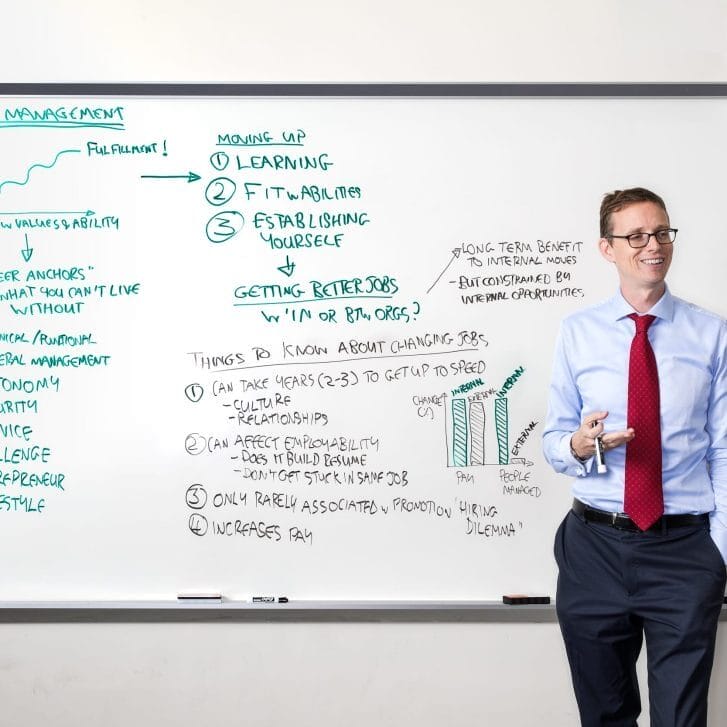 MANAGEMENT
FULFILLMENT!
W VALUES & ABILITY
EER ANCHORS"
WHAT YOU CAN'T LIVE
WITHOUT
NICAL/FUNTIONAL
ERAL MANAGEMENT
TONOMY
URITY
VICE
LLENGE
REPRENEUR
ESTYLE
MOVING UP
① LEARNING
② FIT W ABILITIES
③ ESTABLISHING
YOURSELF
GETTING BETTER JOBS
W'IN OR BTW ORGS?
- LONG TERM BENEFIT
TO INTERNAL MOVES
- BUT CONSTRAINED BY
INTERNAL OPPORTUNITIES
THINGS TO KNOW ABOUT CHANGING JOBS
① CAN TAKE YEARS (2-3) TO GET UP TO SPEED
- CULTURE
- RELATIONSHIPS
② CAN AFFECT EMPLOYABILITY
- DOES IT BUILD RESUME
- DON'T GET STUCK IN SAME JOB
③ ONLY RARELY ASSOCIATED W PROMOTION "HIRING
DILEMMA"
④ INCREASES PAY
CHANGE
(%)
INTERNAL
EXTERNAL
INTERNAL
EXTERNAL
PAY
PEOPLE
MANAGED
EXPO